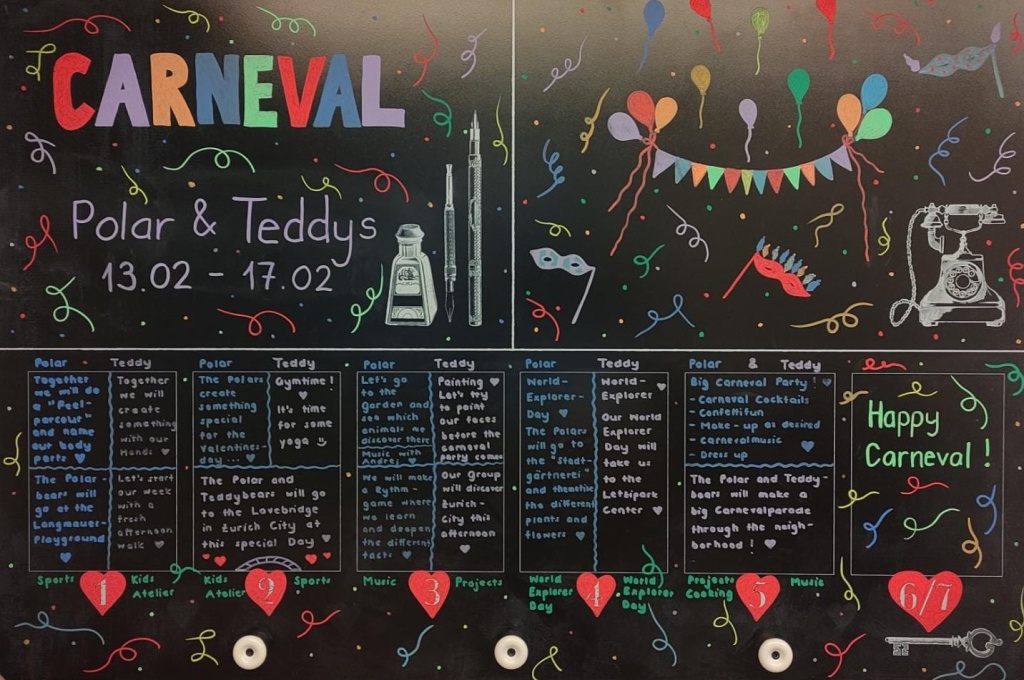 CARNEVAL
Polar & Teddys
13.02 - 17.02
Polar
Together
we will do
a "Feel-
parcour"
and name
our body
parts
Teddy
Together
we will
create
something
with our
Hands
The Polar-
bears will
go at the
Langmauer-
Playground
Let's start
our week
with a
fresh
afternoon
walk
Sports
1
Kids
Atelier
Polar
The Polars
create
something
special
for the
Valentines-
day...
Teddy
Gymtime!
It's time
for some
yoga
The Polar and
Teddybears will go
to the Lovebridge
in Zurich City at
this special Day
Kids
Atelier
2
Sports
Polar
Let's go
to the
Garden and
see which
animals we
discover there
Music with
Andrej
We will make
a Rythm-
game where
we learn
and deepen
the different
facts
Teddy
Painting
Let's try
to paint
our faces
before the
carneval
party comes
Our Group
will discover
Zurich-
City this
afternoon
Music
3
Projects
Polar
World-
Explorer-
Day
The Polars
will go to
the "Stadt-
gärtnerei"
and thematise
the different
plants and
flowers
Teddy
World-
Explorer
Our World
Explorer
Day will
take us
to the
Letzipark
Center
World
Explorer
Day
4
World
Explorer
Day
Polar & Teddy
Big Carneval Party!
- Carneval Cocktails
- Confettifun
- Make-up as desired
- Carnevalmusic
- Dress up
The Polar and Teddy-
bears will make a
big Carnevalparade
through the neigh-
borhood!
Projects
Cooking
5
Music
Happy
Carneval!
6/7